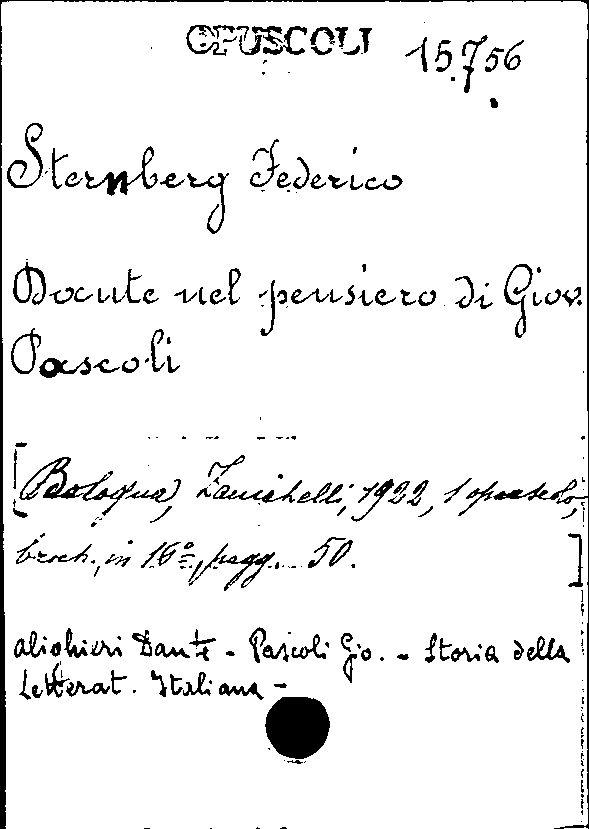 OPUSCOLI 15.756
Sternberg Federico
Dante nel pensiero di Giov.
Pascoli
[Bologna, Zanichelli, 1922, 1 opuscolo,
broch., in 16º, pagg. 50.]
Alighieri Dante - Pascoli Gio. - Storia della
Letterat. Italiana -